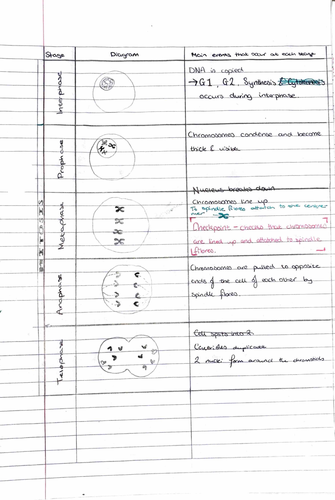 Stage Diagram Main events that occur at each stage
Interphase
DNA is copied
→ G1, G2, Synthesis &
occurs during interphase.
Prophase
Chromosomes condense and become
thick & visible.
Nucleus breaks down
MITOSIS
Metaphase
Chromosomes line up
To spindle fibres attach to the
Checkpoint - checks that chromosomes
are lined up and attached to spindle
fibres.
Anaphase
Chromosomes are pulled to opposite
ends of the cell of each other by
spindle fibres.
Telophase
Cell splits into 2
Centrioles duplicate
2 nuclei form around the chromatids